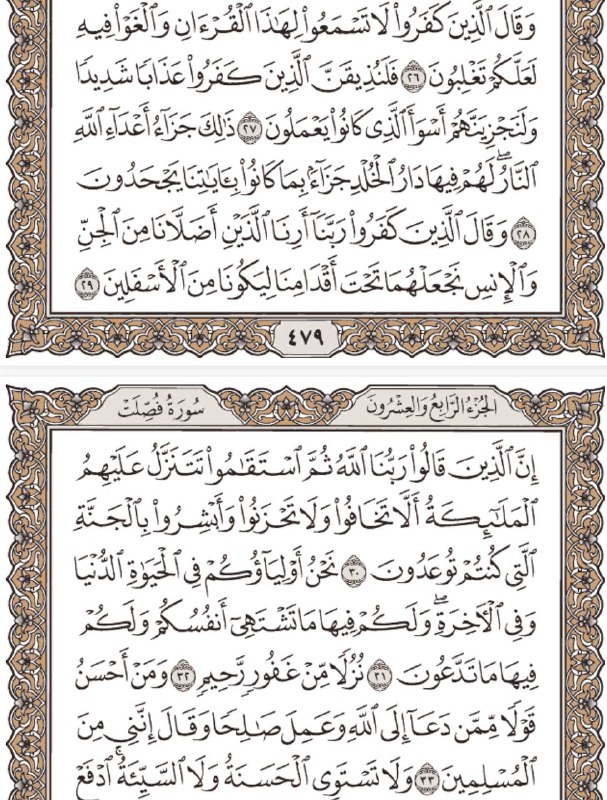 وَقَالَ ٱلَّذِينَ كَفَرُوا۟ لَا تَسْمَعُوا۟ لِهَٰذَا ٱلْقُرْءَانِ وَٱلْغَوْا۟ فِيهِ
لَعَلَّكُمْ تَغْلِبُونَ ٢٦ فَلَنُذِيقَنَّ ٱلَّذِينَ كَفَرُوا۟ عَذَابًا شَدِيدًا
وَلَنَجْزِيَنَّهُمْ أَسْوَأَ ٱلَّذِى كَانُوا۟ يَعْمَلُونَ ٢٧ ذَٰلِكَ جَزَآءُ أَعْدَآءِ ٱللَّهِ
ٱلنَّارُ ۖ لَهُمْ فِيهَا دَارُ ٱلْخُلْدِ جَزَآءًۢ بِمَا كَانُوا۟ بِـَٔايَٰتِنَا يَجْحَدُونَ
٢٨ وَقَالَ ٱلَّذِينَ كَفَرُوا۟ رَبَّنَآ أَرِنَا ٱلَّذَيْنِ أَضَلَّانَا مِنَ ٱلْجِنِّ
وَٱلْإِنسِ نَجْعَلْهُمَا تَحْتَ أَقْدَامِنَا لِيَكُونَا مِنَ ٱلْأَسْفَلِينَ ٢٩
٤٧٩
الجُزْءُ الرَّابِعُ وَالعِشْرُونَ سُورَةُ فُصِّلَتْ
إِنَّ ٱلَّذِينَ قَالُوا۟ رَبُّنَا ٱللَّهُ ثُمَّ ٱسْتَقَٰمُوا۟ تَتَنَزَّلُ عَلَيْهِمُ
ٱلْمَلَٰٓئِكَةُ أَلَّا تَخَافُوا۟ وَلَا تَحْزَنُوا۟ وَأَبْشِرُوا۟ بِٱلْجَنَّةِ
ٱلَّتِى كُنتُمْ تُوعَدُونَ ٣٠ نَحْنُ أَوْلِيَآؤُكُمْ فِى ٱلْحَيَوٰةِ ٱلدُّنْيَا
وَفِى ٱلْءَاخِرَةِ ۖ وَلَكُمْ فِيهَا مَا تَشْتَهِىٓ أَنفُسُكُمْ وَلَكُمْ
فِيهَا مَا تَدَّعُونَ ٣١ نُزُلًا مِّنْ غَفُورٍ رَّحِيمٍ ٣٢ وَمَنْ أَحْسَنُ
قَوْلًا مِّمَّن دَعَآ إِلَى ٱللَّهِ وَعَمِلَ صَٰلِحًا وَقَالَ إِنَّنِى مِنَ
ٱلْمُسْلِمِينَ ٣٣ وَلَا تَسْتَوِى ٱلْحَسَنَةُ وَلَا ٱلسَّيِّئَةُ ۚ ٱدْفَعْ